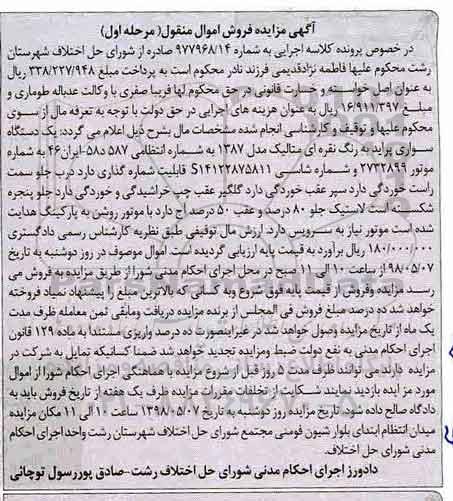 آگهی مزایده فروش اموال منقول( مرحله اول)
در خصوص پرونده کلاسه اجرایی به شماره ۹۷۷۹۶۸/۱۴ صادره از شورای حل اختلاف شهرستان
رشت محکوم علیها فاطمه نژادقدیمی فرزند نادر محکوم است به پرداخت مبلغ ۳۳۸/۲۲۷/۹۴۸ ریال
به عنوان اصل خواسته و خسارت قانونی در حق محکوم لها فریبا صفری با وکالت عبداله طوماری و
مبلغ ۱۶/۹۱۱/۳۹۷ ریال به عنوان هزینه های اجرایی در حق دولت با توجه به تعرفه مال از سوی
محکوم علیها و توقیف و کارشناسی انجام شده مشخصات مال بشرح ذیل اعلام می گردد: یک دستگاه
سواری پراید به رنگ نقره ای متالیک مدل ۱۳۸۷ به شماره انتظامی ۵۸۷ د۵۸-ایران۴۶ به شماره
موتور ۲۷۳۲۸۹۹ و شماره شاسی S۱۴۱۲۲۸۷۵۸۱۱ قابلیت شماره گذاری دارد درب جلو سمت
راست خوردگی دارد سپر عقب خوردگی دارد گلگیر عقب چپ خراشیدگی و خوردگی دارد جلو پنجره
شکسته است لاستیک جلو ۸۰ درصد و عقب ۵۰ درصد آج دارد با موتور روشن به پارکینگ هدایت
شده است موتور نیاز به سرویس دارد. ارزش مال توقیفی طبق نظریه کارشناس رسمی دادگستری
۱۸۰/۰۰۰/۰۰۰ ریال برآورد به قیمت پایه ارزیابی گردیده است. اموال موصوف در روز دوشنبه به تاریخ
۹۸/۰۵/۰۷ از ساعت ۱۰ الی ۱۱ صبح در محل اجرای احکام مدنی شورا از طریق مزایده به فروش می
رسد مزایده وفروش از قیمت پایه فوق شروع وبه کسانی که بالاترین مبلغ را پیشنهاد نمایند فروخته
خواهد شد ده درصد مبلغ فروش فی المجلس از برنده مزایده دریافت ومابقی ثمن معامله ظرف مدت
یک ماه از تاریخ مزایده وصول خواهد شد در غیراینصورت ده درصد واریزی مستندا به ماده ۱۲۹ قانون
اجرای احکام مدنی به نفع دولت ضبط ومزایده تجدید خواهد شد ضمنا کسانیکه تمایل به شرکت در
مزایده دارند می توانند ظرف مدت ۵ روز قبل از شروع مزایده با هماهنگی اجرای احکام شورا از اموال
مورد مزایده بازدید نمایند شکایت از تخلفات مقررات مزایده ظرف یک هفته از تاریخ فروش باید به
دادگاه صالح داده شود. تاریخ مزایده روز دوشنبه به تاریخ ۱۳۹۸/۰۵/۰۷ ساعت ۱۰ الی ۱۱ مکان مزایده
میدان انتظام ابتدای بلوار شیون فومنی مجتمع شورای حل اختلاف شهرستان رشت واحد اجرای احکام
مدنی شورای حل اختلاف.
دادورز اجرای احکام مدنی شورای حل اختلاف رشت-صادق پوررسول توچائی